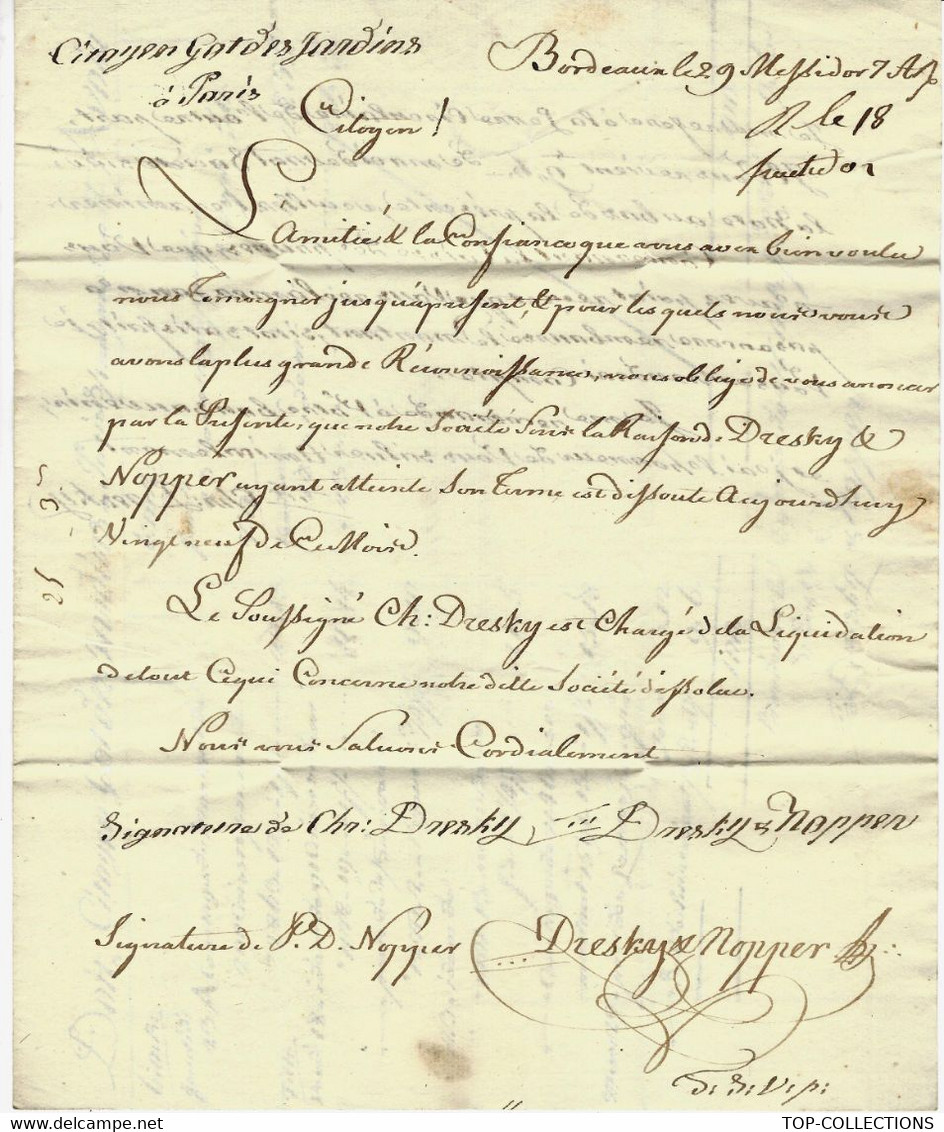 Citoyen Gat des Jardins
à Paris
Bordeaux le 29 Messidor 7 An
R le 18
fructidor
Citoyen !
L'Amitié & la Confiance que vous avez bien voulu
nous Temoigner jusqu'apresent, & pour les quels nous vous
avons la plus grande Réconnoissance, nous oblige de vous anoncer
par la Présente, que notre Societé Sous la Raison de Dresky &
Nopper ayant atteinte Son Terme est dissoute Aujourdhuy
Vingt neuf de Ce Mois.
Le Soussigné Ch: Dresky est Chargé de la Liquidation
de tout Ce qui Concerne notre ditte Société dissolue.
Nous vous Saluons Cordialement
Signature de Chr: Dresky Dresky & Nopper
Signature de P. D. Nopper Dresky & Nopper
25 - 3
TOP-COLLECTIONS